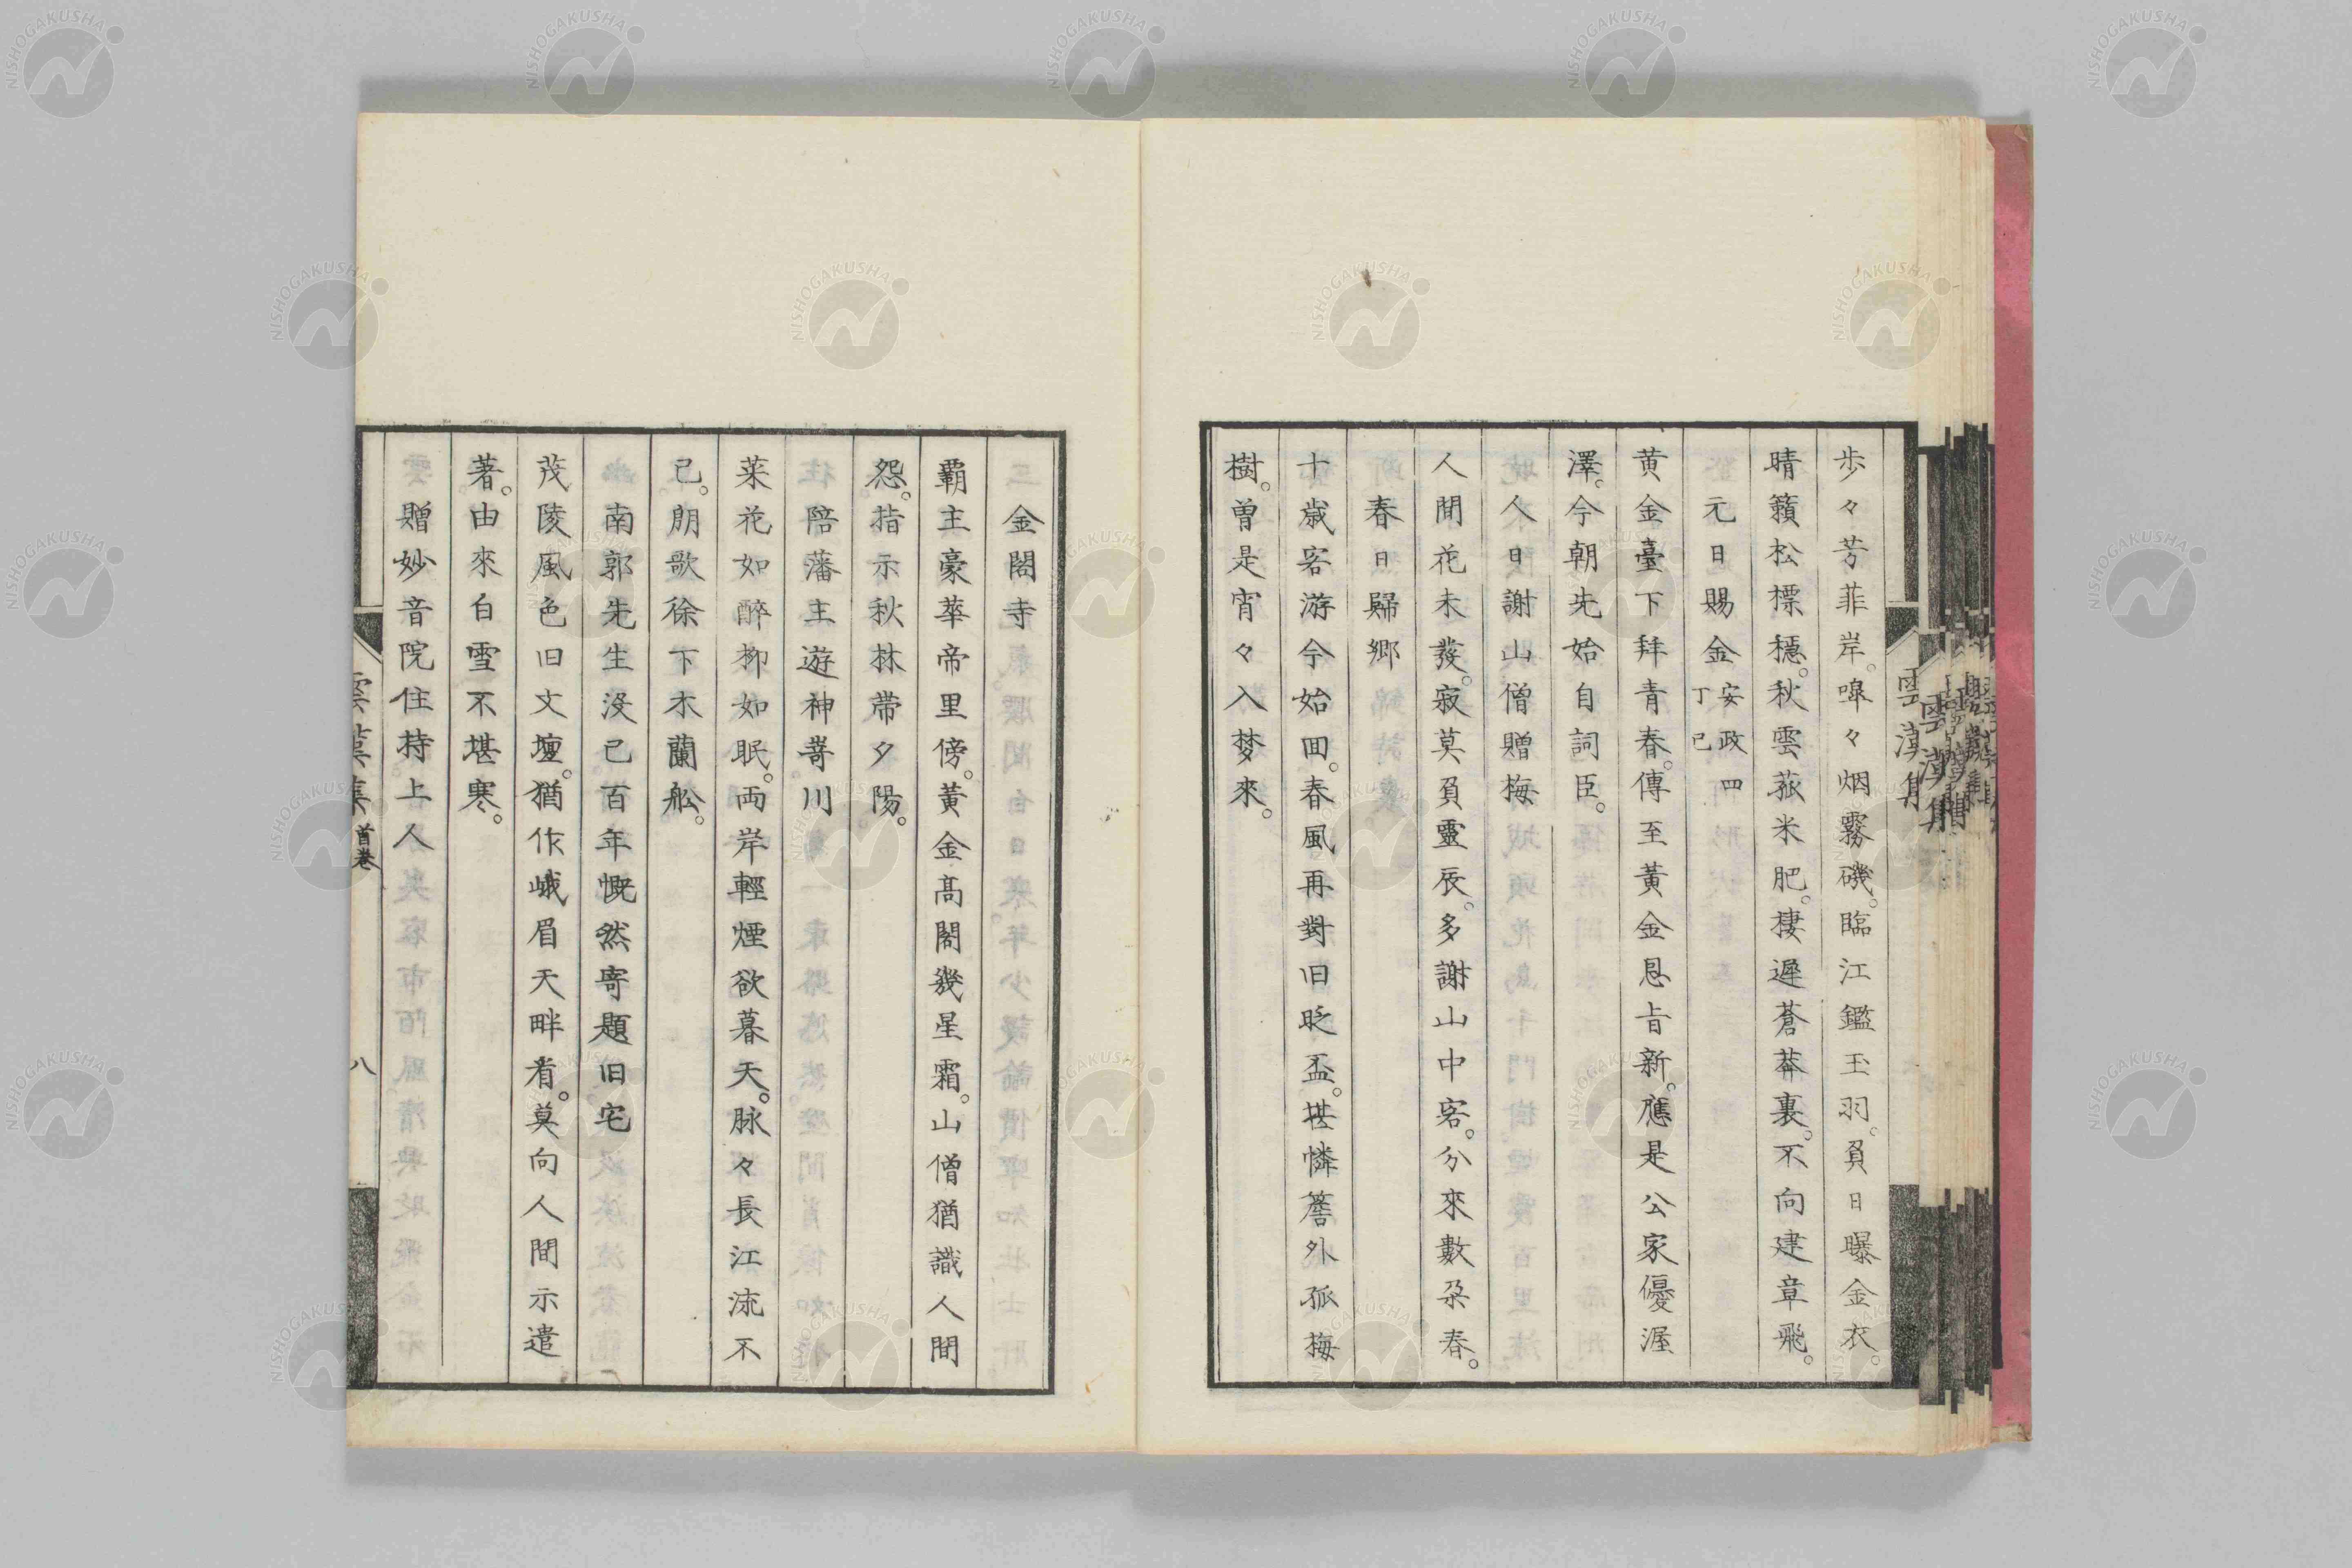 歩々芳菲岸。皞々烟霧磯。臨江鑑玉羽。負日曝金衣。
晴籟松標穏。秋雲菰米肥。棲遲蒼莽裏。不向建章飛。
元日賜金 安政四丁巳
黄金臺下拜青春。傳至黃金恩旨新。應是公家優渥
澤。今朝先始自詞臣。
人日謝山僧贈梅
人間花未發。寂莫負靈辰。多謝山中客。分來數朶春。
春日歸鄉
十歲客游今始回。春風再對旧盃。堪憐簷外孤梅
樹。曽是宵々入梦來。
金閣寺
覇主豪華帝里傍。黃金髙閣幾星霜。山僧猶識人間
怨。指示秋林帶夕陽。
陪藩主遊神嵜川
菜花如醉柳如眠。両岸輕煙欲暮天。脉々長江流不
已。朗歌徐下木蘭舩。
南郭先生沒已百年慨然寄題旧宅
茂陵風色旧文壇。猶作峨眉天畔看。莫向人間示遣
著。由來白雪不堪寒。
贈妙音院住持上人
雲漢集 首巻 八
雲漢集
NISHOGAKUSHA